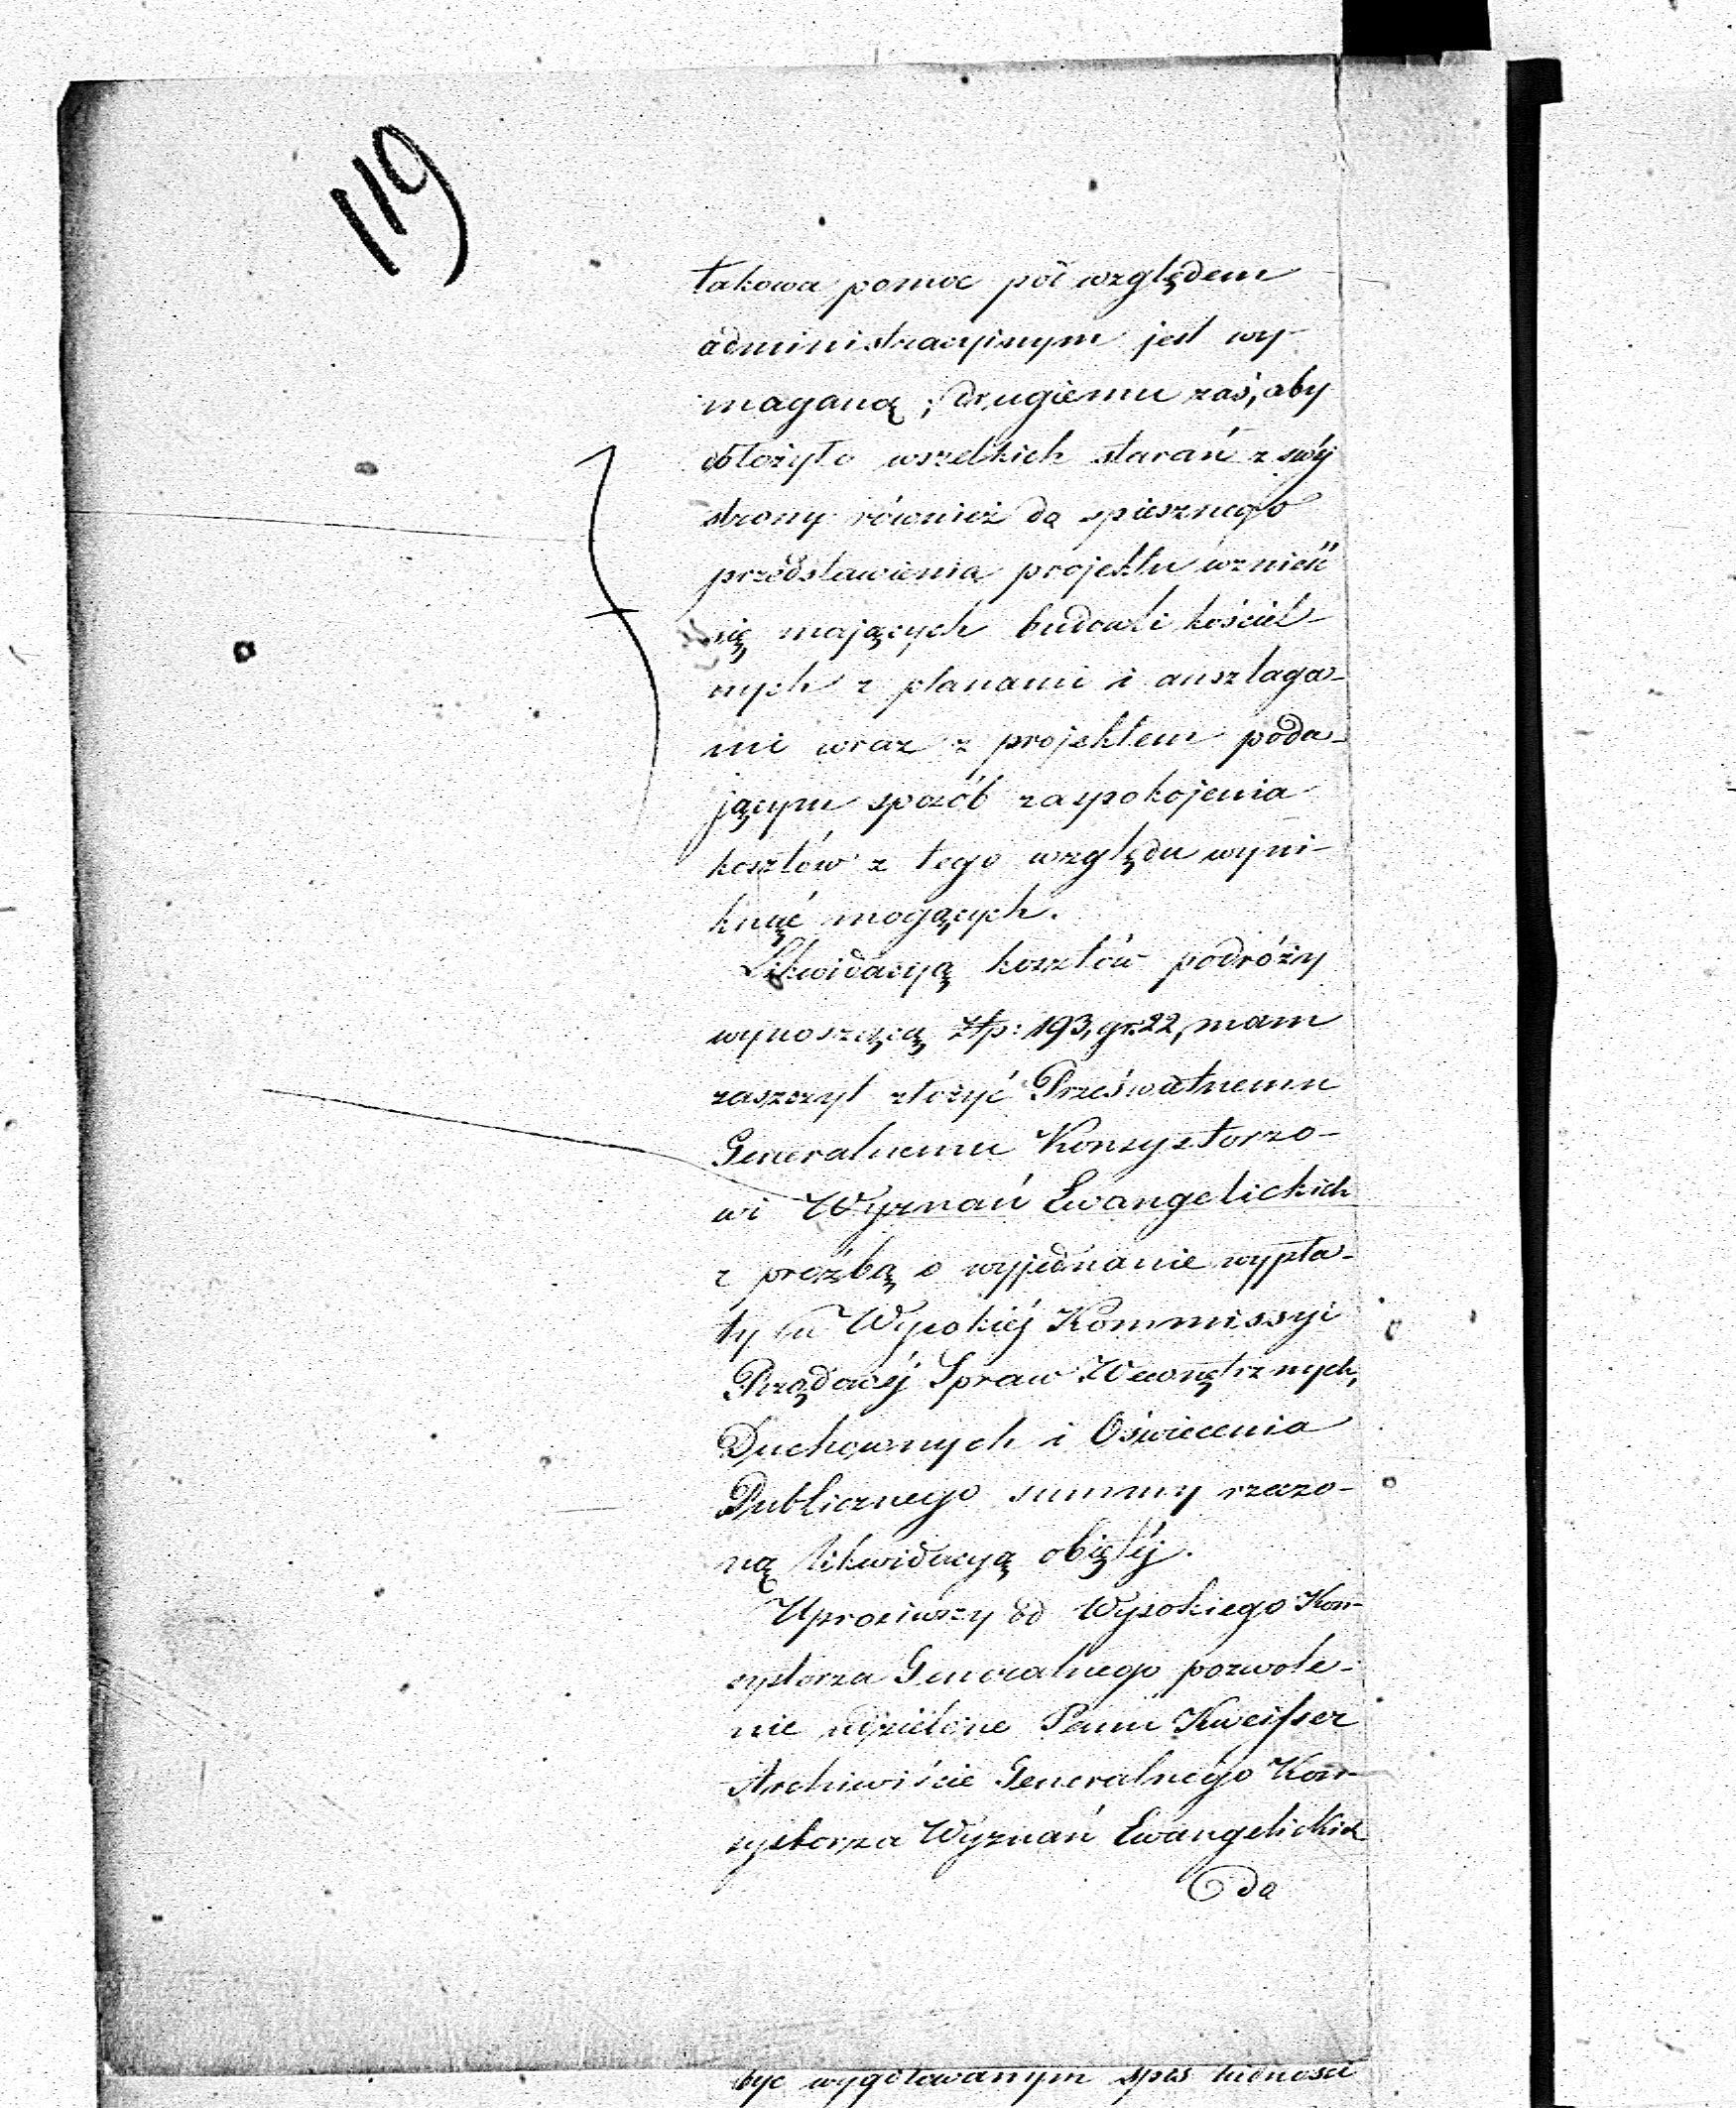 119
takowa pomoc pod względem
administracyjnym jest wy-
maganą; drugiemu zaś, aby
dołożyło wszelkich starań z swéj
strony również do spiesznego
przedstawienia projektu wznieść
się mających budowli kościel-
nych z planami i anszlaga-
mi wraz z projektem poda-
jącym sposób zaspokojenia
kosztów z tego względu wyni-
knąć mogących.
Likwidacyą kosztów podróży
wynoszącą Złp: 193, gr: 22, mam
zaszczyt złożyć Prześwietnemu
Generalnemu Konsystorzo-
wi Wyznań Ewangelickich
z prośbą o wyjednanie wypła-
ty w Wysokiéj Kommissyi
Rządowéj Spraw Wewnętrznych,
Duchownych i Oświecenia
Publicznego summy rzeczo-
ną likwidacyą objętéj.
Uprosiwszy od Wysokiego Kon-
systorza Generalnego pozwole-
nie udzielone Panu Kweisser
Archiwiście Generalnego Kon-
systorza Wyznań Ewangelickich
do
być wygotowanym spis ludności